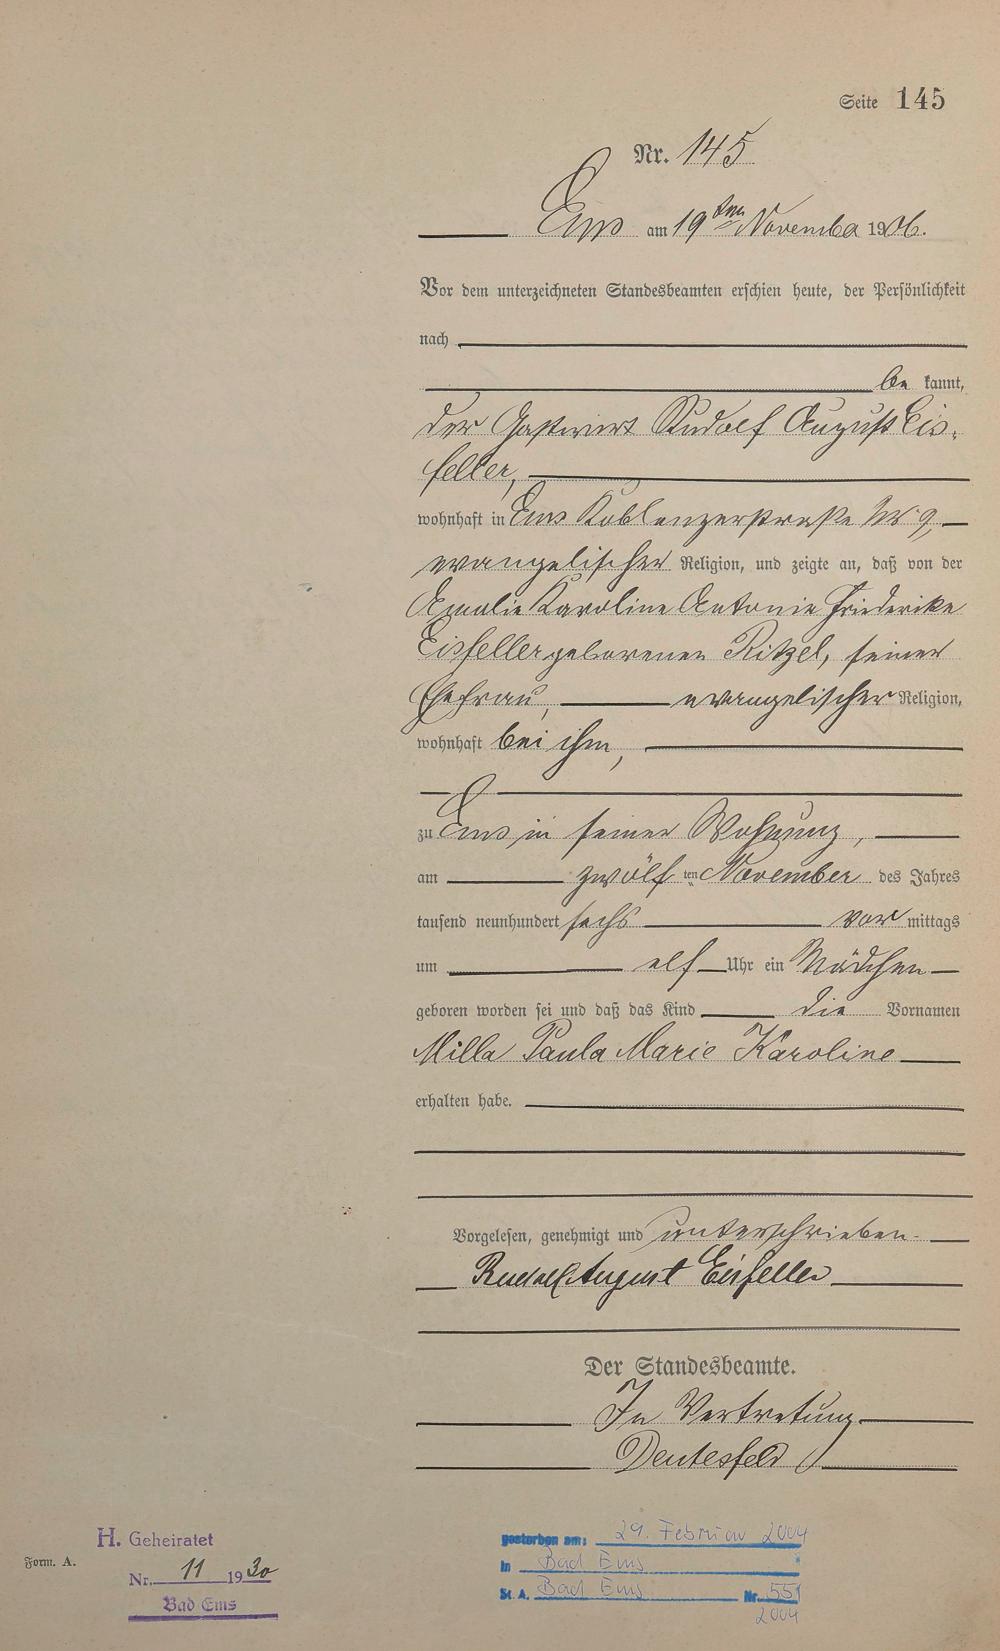 Seite 145
Nr. 145
Ems am 19ten November 1906.
Vor dem unterzeichneten Standesbeamten erschien heute, der Persönlichkeit
nach
be kannt,
der Gastwirt Rudolf August Eis-
feller,
wohnhaft in Ems Koblenzerstraße No 9,
evangelischer Religion, und zeigte an, daß von der
Amalie Karoline Antonie Friederike
Eisfeller geborenen Ritzel, seiner
Ehefrau, evangelischer Religion,
wohnhaft bei ihm,
zu Ems in seiner Wohnung,
am zwölf ten November des Jahres
tausend neunhundert sechs vor mittags
um elf Uhr ein Mädchen
geboren worden sei und daß das Kind die Vornamen
Milla Paula Marie Karoline
erhalten habe.
Vorgelesen, genehmigt und unterschrieben.
Rudolf August Eisfeller
Der Standesbeamte.
In Vertretung
H. Geheiratet
Form. A.
Nr. 11 1930
Bad Ems
gestorben am: 29. Februar 2004
in Bad Ems
St. A. Bad Ems Nr. 55/
2004